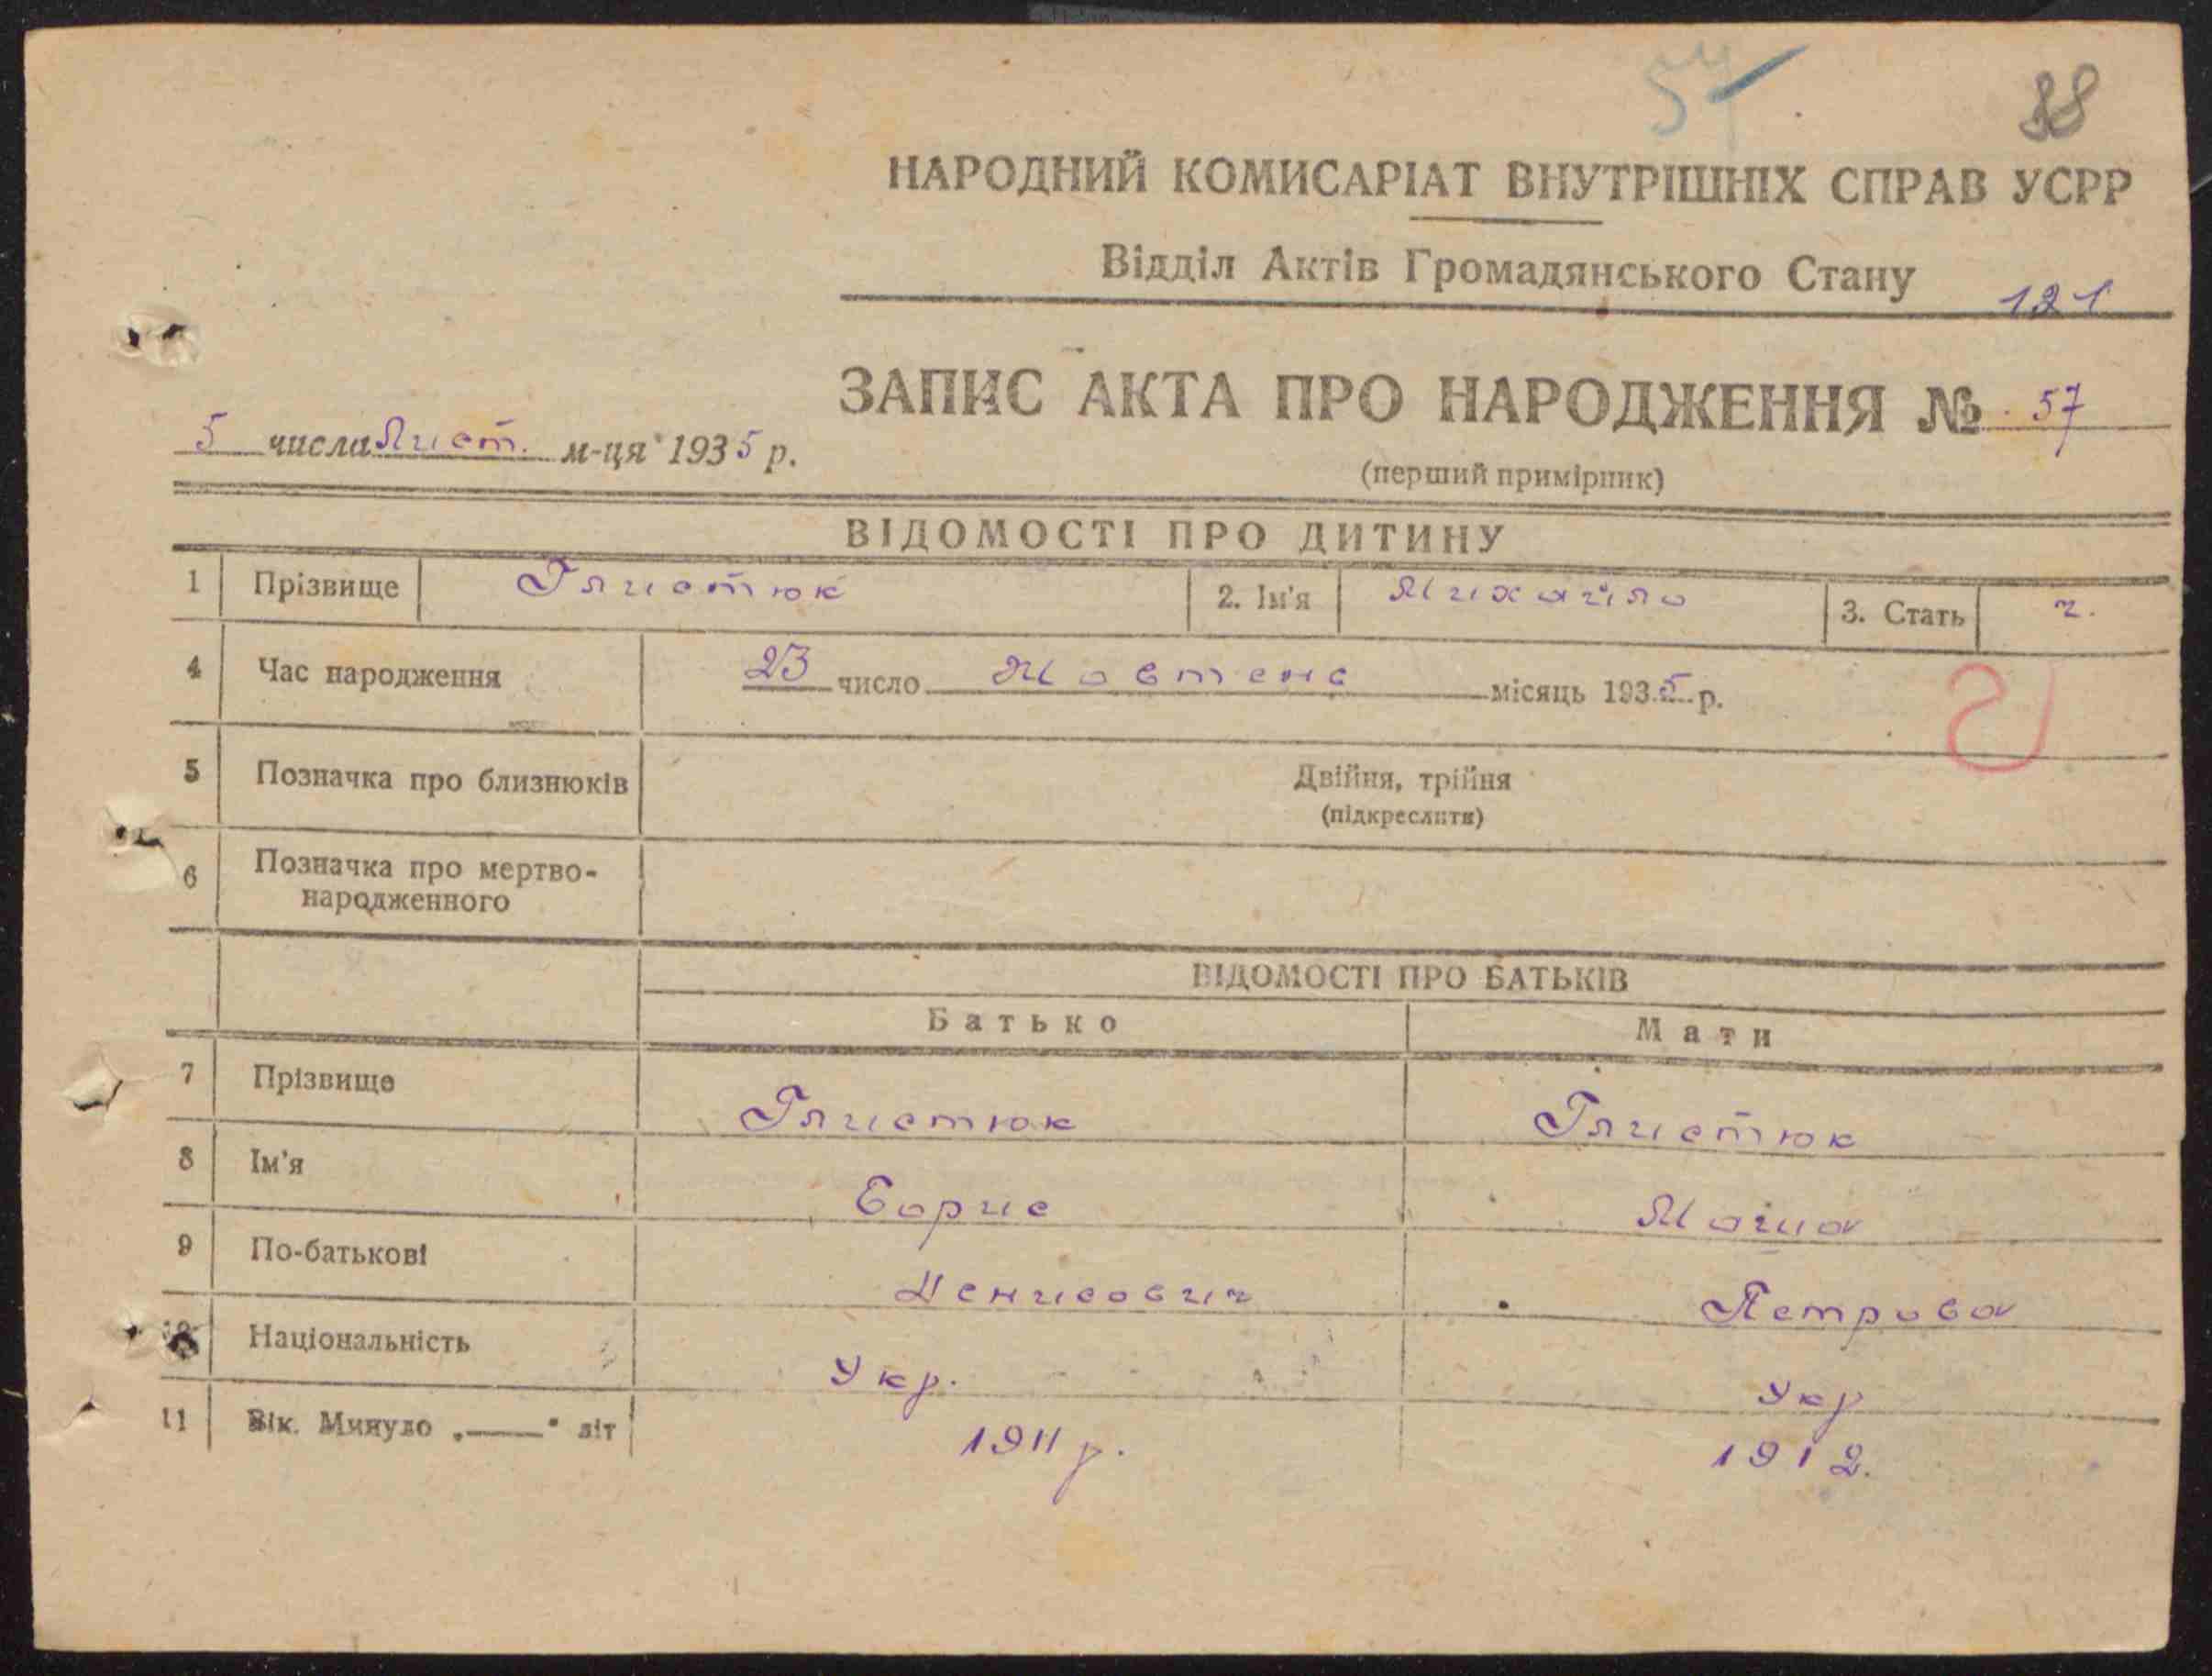 57
88
НАРОДНИЙ КОМИСАРІАТ ВНУТРІШНІХ СПРАВ УСРР
Відділ Актів Громадянського Стану
121
ЗАПИС АКТА ПРО НАРОДЖЕННЯ № 57
5 числа Лист. м-ця 1935 р.
(перший примірник)
ВІДОМОСТІ ПРО ДИТИНУ
1 Прізвище Глистюк 2. Ім'я Михайло 3. Стать ч.
4 Час народження 23 число Жовтень місяць 1935 р.
5 Позначка про близнюків Двійня, трійня
(підкреслити)
6 Позначка про мертво-
народженного
ВІДОМОСТІ ПРО БАТЬКІВ
Батько Мати
7 Прізвище Глистюк Глистюк
8 Ім'я Борис
9 По-батькові Денисович Петрова
10 Національність Укр. Укр
11 Вік. Минуло „—“ літ 1911 р. 1912.